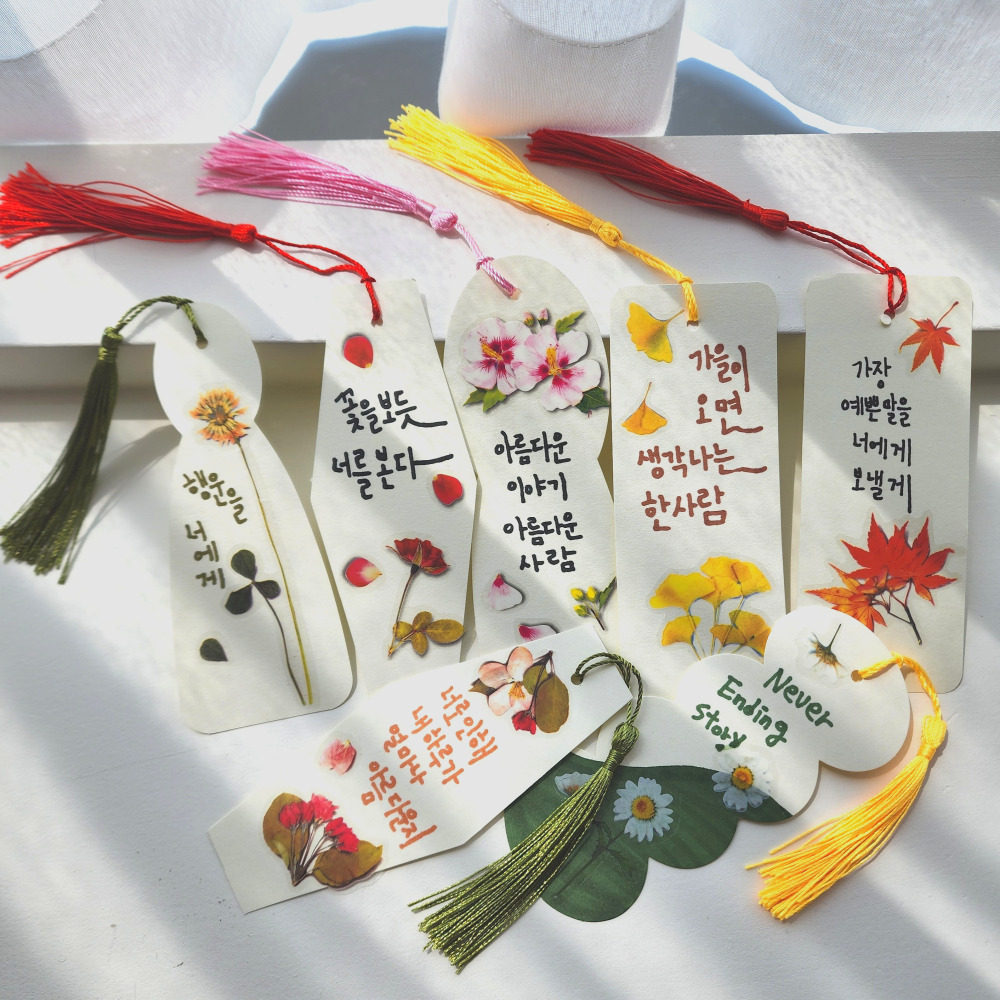 행운을
너
에
게
꽃을보듯
너를본다
아름다운
이야기
아름다운
사람
가을이
오면
생각나는
한사람
가장
예쁜말을
너에게
보낼게
너로인해
내하루가
얼마나
아름다운지
Never
Ending
Story